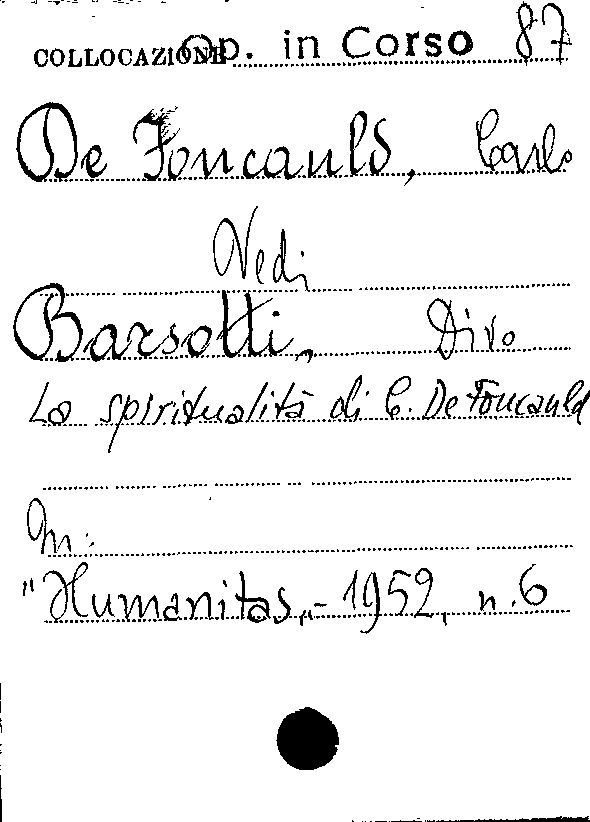 COLLOCAZIONE Op. in Corso 87
De Foucauld, Carlo
Vedi
Barsotti, Divo
La spiritualità di C. De Foucauld
In:
"Humanitas„- 1952, n.6